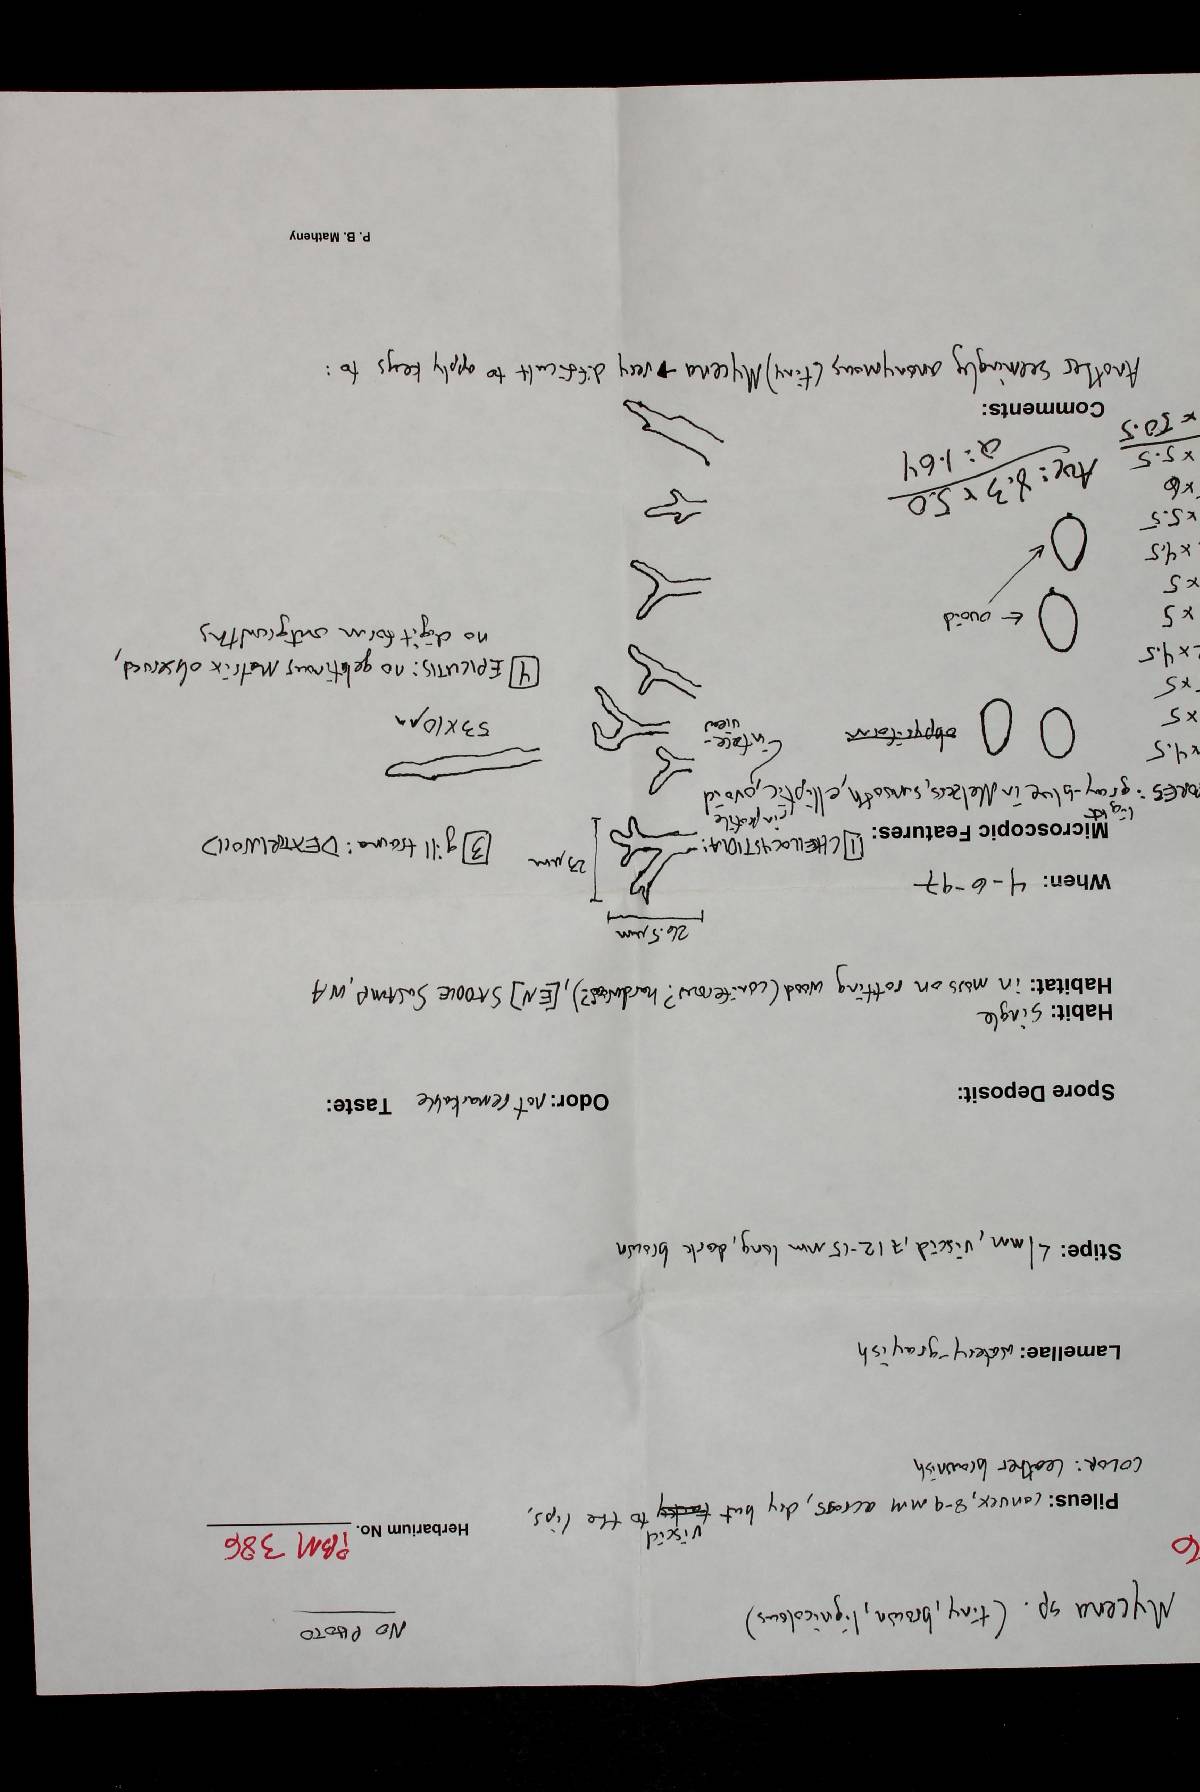 NO PHOTO
Mycena sp. (tiny, brown, lignicolous)
6
Herbarium No. PBM 386
viscid
Pileus: convex, 8-9 mm across, dry but tacky to the lips,
COLOR: leather brownish
Lamellae: watery-grayish
Stipe: <1mm, viscid, 7 12-15 mm long, dark brown
Spore Deposit:
Odor: not remarkable Taste:
Habit: single
Habitat: in moss on rotting wood (coniferous? hardwood?), [EN] SNOOSE SWAMP, WA
26.5 µm
When: 4-6-97
23 µm
Microscopic Features: 1 CHEILOCYSTIDIA:
in profile
3 gill trama: DEXTRINOID
light
ORES: gray-blue in Melzers, smooth, elliptic, ovoid
× 4.5
× 5
× 5
× 4.5
× 5
× 5
× 4.5
× 5.5
× 6
× 5.5
× 50.5
obpyriform
in face-
view
53 × 10 µm
4 EPICUTIS: no gelatinous matrix observed,
no digitiform outgrowths
← ovoid
Ave: 8.3 × 5.0
Q: 1.64
Comments:
Another seemingly anonymous (tiny) Mycena → very difficult to apply keys to:
P. B. Matheny